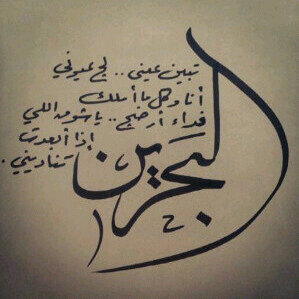 تبين عيني .. لج عيوني
أنا وكل ما أملك
فداء أرضج .. يا شوق اللي
إذا أبعدت
تناديني .
البحرين